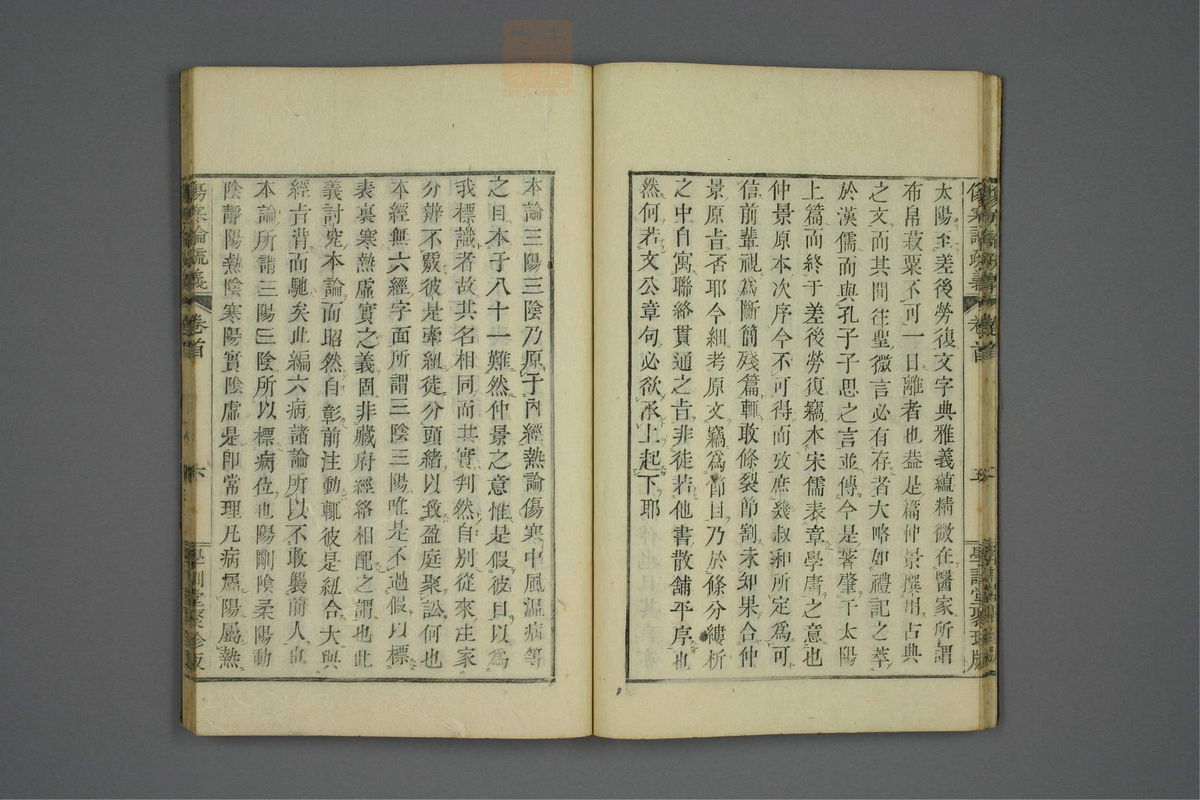 傷寒論疏義　卷首　五　學訓堂聚珍版
太陽至差後勞復文字典雅義蘊精微在醫家所謂
布帛菽粟不可一日離者也蓋是篇仲景撰用古典
之文而其間往聖微言必有存者大略如禮記之萃
於漢儒而與孔子子思之言並傳今是著肇于太陽
上篇而終于差後勞復竊本宋儒表章學庸之意也
仲景原本次序今不可得而攷庶幾叔和所定爲可
信前輩視爲斷簡殘篇輒敢條裂節割未知果合仲
景原旨否耶今細考原文竊爲節目乃於條分縷析
之中自寓聯絡貫通之旨非徒若他書散舖平序也
然何若文公章句必欲承上起下耶
本論三陽三陰乃原于內經熱論傷寒中風溫病等
之目本于八十一難然仲景之意惟是假彼目以爲
我標識者故其名相同而其實判然自別從來注家
分辨不覈彼是牽紐徒分頭緒以致盈庭聚訟何也
本經無六經字面所謂三陰三陽唯是不過假以標
表裏寒熱虛實之義固非藏府經絡相配之謂也此
義討究本論而昭然自彰前注動輒彼是紐合大與
經旨背而馳矣此編六病諸論所以不敢襲前人也
本論所謂三陽三陰所以標病位也陽剛陰柔陽動
陰靜陽熱陰寒陽實陰虛是卽常理凡病屬陽屬熱
傷寒論疏義　卷首　六　學訓堂聚珍版